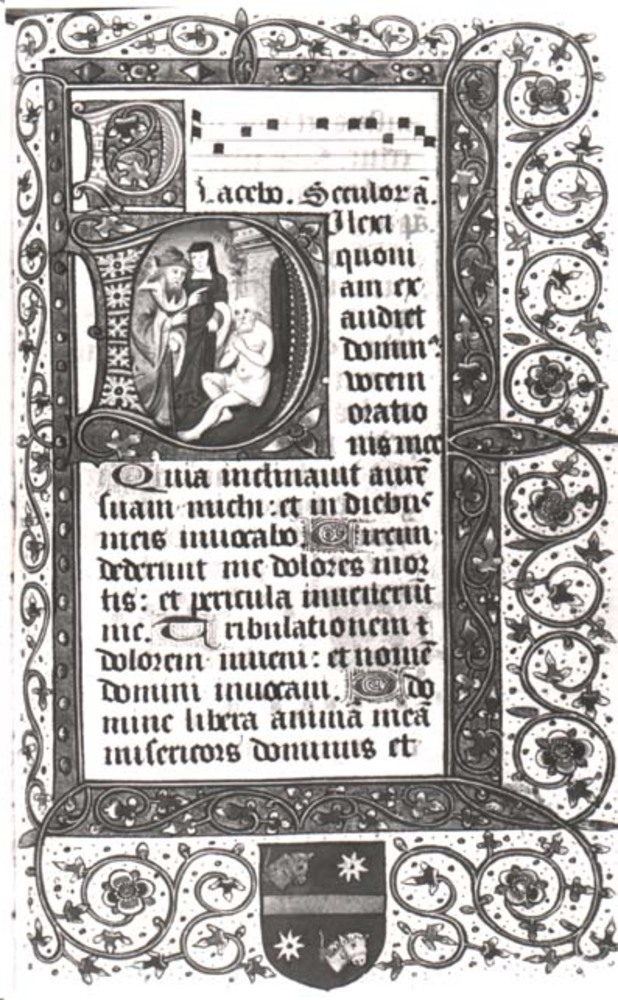 Placebo. Seculor ā.
Dilexi ps.
quoni
am ex
audiet
dominꝰ:
vocem
oratio
nis mee
Quia inclinauit aurē
suam michi: et in diebuꝰ
meis inuocabo Circum
dederunt me dolores mor
tis: et pericula inuenerūt
me. Tribulationem ⁊
dolorem inueni: et nomē
domini inuocaui. O do
mine libera animā meā
misericors dominus et